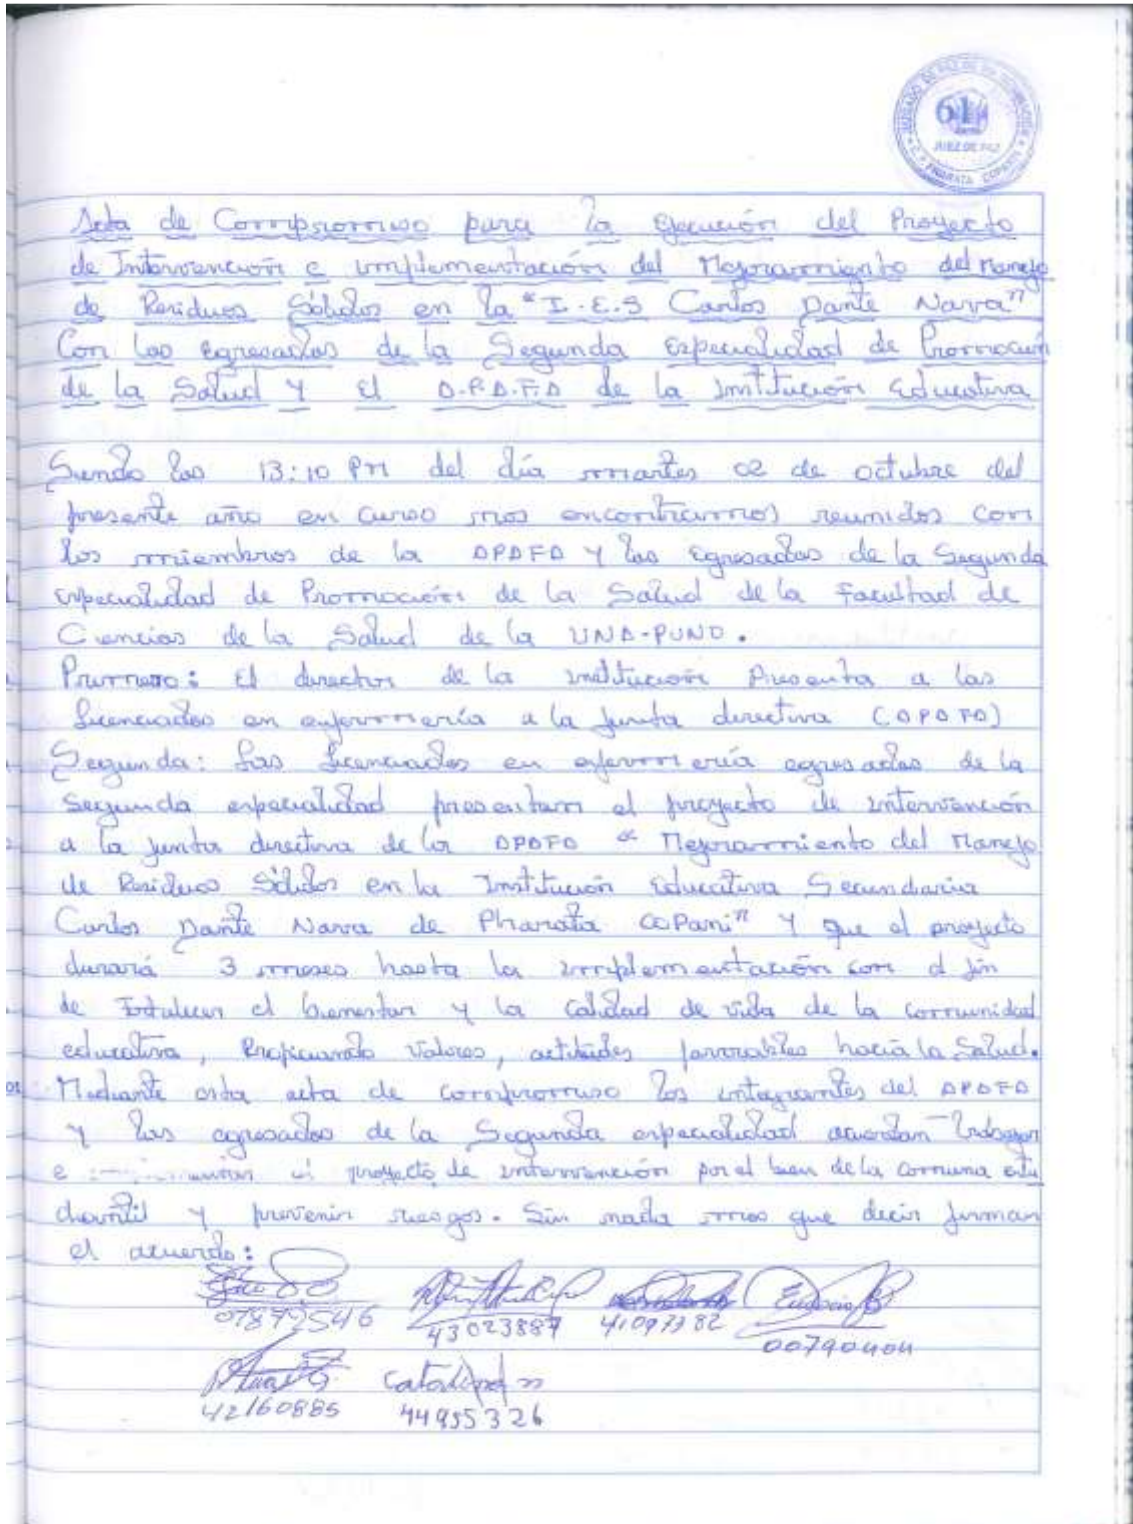 JUZGADO DE PAZ DE
61
JUEZ DE PAZ
PHARATA COPANI
Acta de Compromiso para la Ejecución del Proyecto
de Intervención e implementación del Mejoramiento del Manejo
de Residuos Sólidos en la "I.E.S Carlos Dante Nava"
Con los egresados de la Segunda Especialidad de Promoción
de la Salud y el A.P.A.F.A de la Institución Educativa
Siendo las 13:10 PM del día martes 02 de octubre del
presente año en curso nos encontramos reunidos con
los miembros de la APAFA y las Egresadas de la Segunda
especialidad de Promoción de la Salud de la Facultad de
Ciencias de la Salud de la UNA-PUNO.
Primero: El director de la institución Presenta a las
licenciadas en enfermería a la junta directiva (APAFA)
Segunda: Las licenciadas en enfermería egresadas de la
Segunda especialidad presentam el proyecto de intervención
a la junta directiva de la APAFA " Mejoramiento del Manejo
de Residuos Sólidos en la Institución Educativa Secundaria
Carlos Dante Nava de Pharata Copani" y que el proyecto
durará 3 meses hasta la implementación con el fin
de Fortalecer el bienestar y la calidad de vida de la comunidad
educativa, Propiciando Valores, actitudes favorables hacia la Salud.
Mediante esta acta de compromiso los integrantes del APAFA
y las egresadas de la Segunda especialidad acuerdan trabajar
e el proyecto de intervención por el bien de la comuna estu
diantil y prevenir riesgos. Sin nada mas que decir firman
el acuerdo:
01872546
43023887
41097382
00790404
42160885
44955326